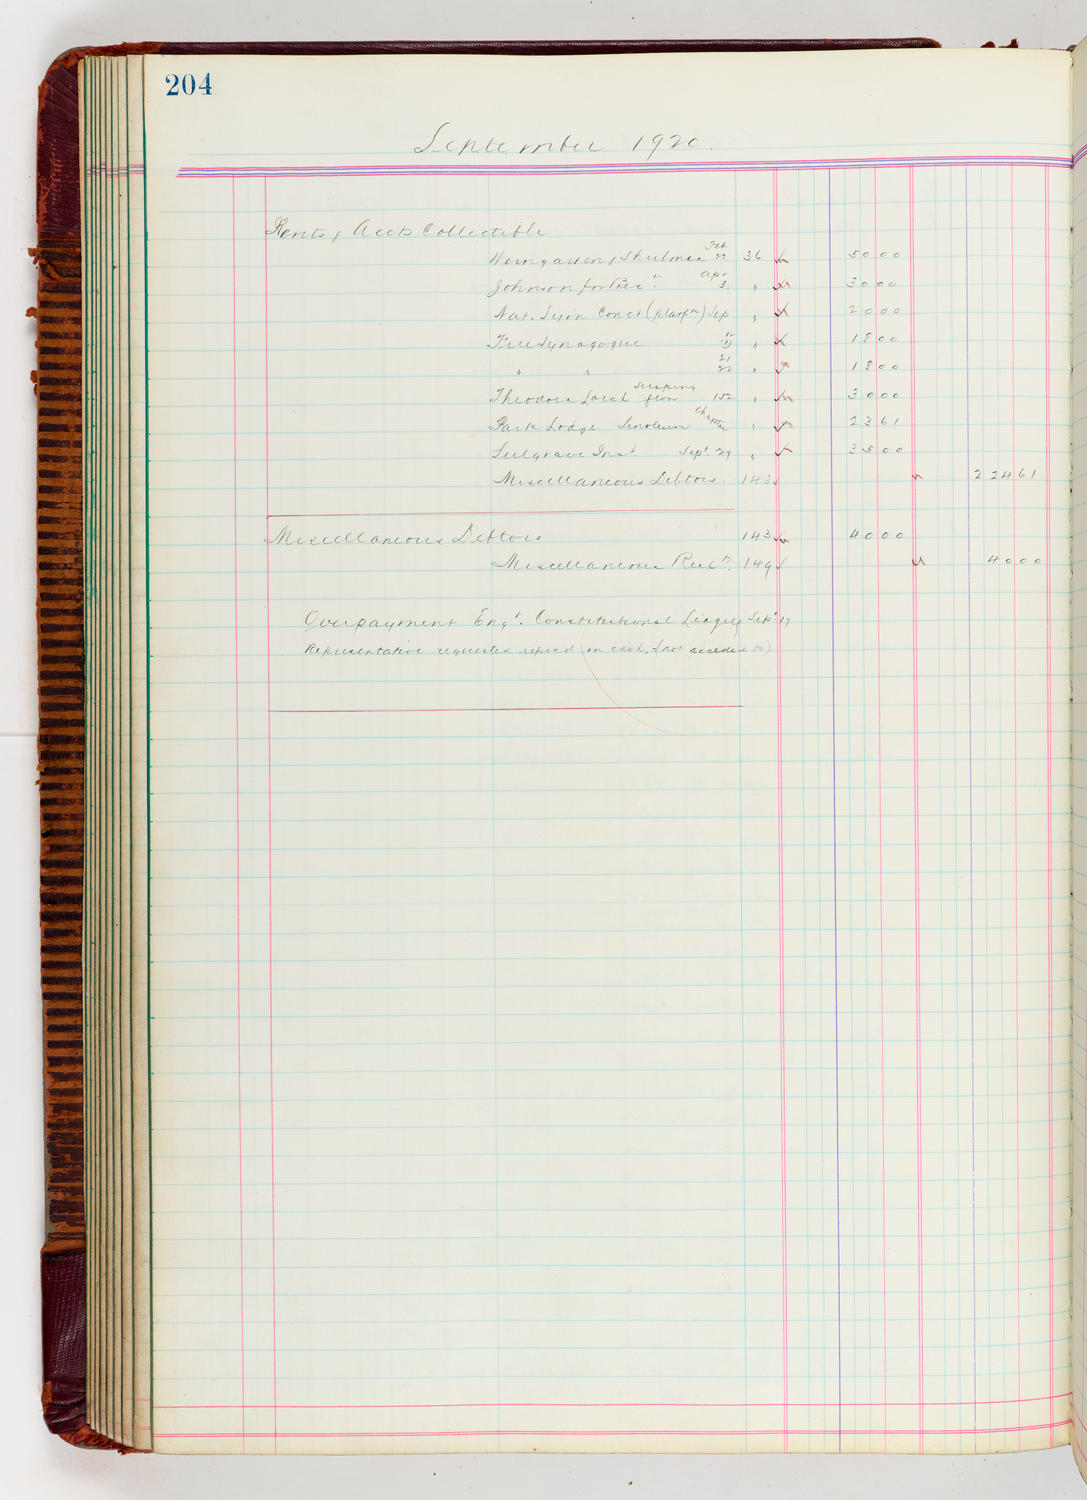 204
September 1920.
Rents & Accts Collectible
Weingarten & Shulman Feb 22 36 50 00
Johnson for Pres. Apr 3. " 30 00
Nat. Sym Conct (platfm) Sep " 20 00
Free Synagogue 12 13 " 18 00
" " 21 22 " 18 00
Theodore scraping floor 152 " 30 00
Park Lodge Linoleum Chapter " 23 61
Sulgrave Inst. Sept. 29 " 35 00
Miscellaneous Debtors. 143 224 61
Miscellaneous Debtors 143 40 00
Miscellaneous Rects. 149 40 00
Overpayment Engt. Constitutional League Sept 17
Representative requested refund (in cash, & not acceded to)